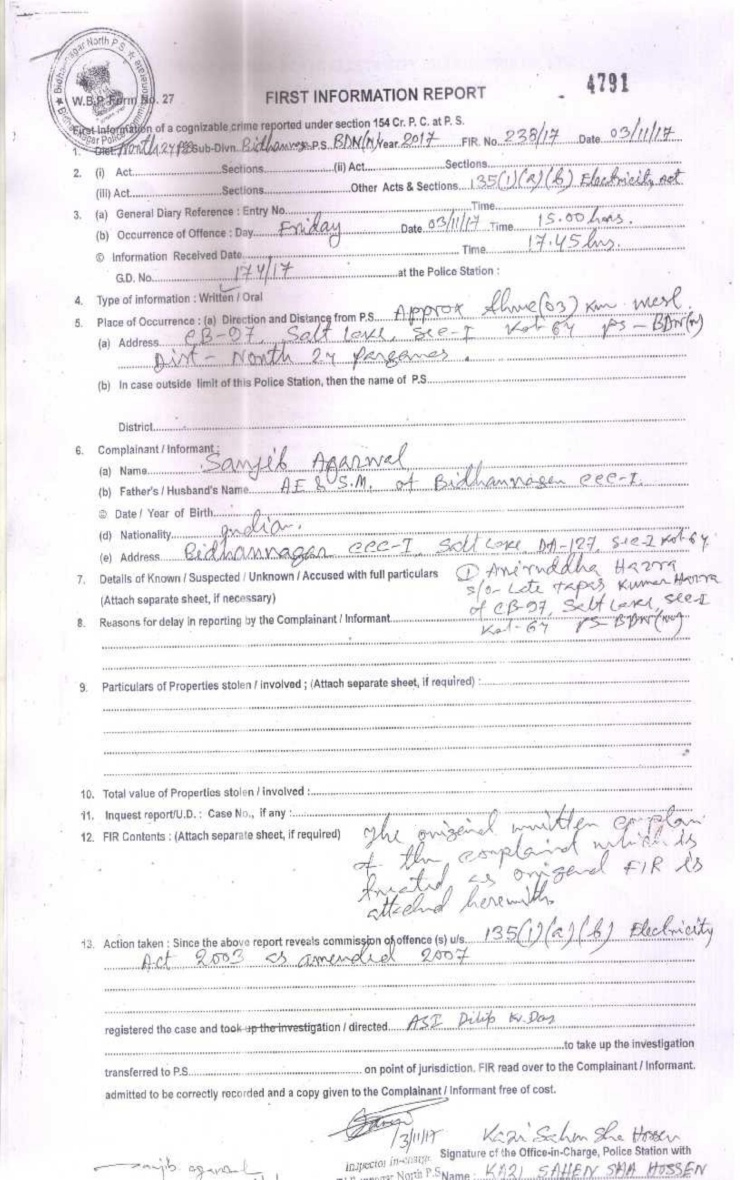 4791
Bidhannagar North P.S.
W.B.P. Form No. 27
FIRST INFORMATION REPORT
First Information of a cognizable crime reported under section 154 Cr. P. C. at P. S.
1. Dist. North 24 PGS Sub-Divn. Bidhannagar P.S. BDN(N) Year 2017 FIR. No. 238/17 Date 03/11/17
2. (i) Act Sections (ii) Act Sections
(iii) Act Sections Other Acts & Sections 135(1)(a)(b) Electricity Act
3. (a) General Diary Reference : Entry No. Time
(b) Occurrence of Offence : Day Friday Date 03/11/17 Time 15.00 hrs.
© Information Received Date Time 17.45 hrs.
G.D. No. 174/17 at the Police Station :
4. Type of information : Written / Oral
5. Place of Occurrence : (a) Direction and Distance from P.S. Approx three (03) km west.
(a) Address CB-97, Salt Lake, Sec-I Kol-64 PS - BDN(N)
Dist - North 24 Parganas.
(b) In case outside limit of this Police Station, then the name of P.S.
District
6. Complainant / Informant :
(a) Name Sanjib Agarwal
(b) Father's / Husband's Name AE & S.M. of Bidhannagar CCC-I.
© Date / Year of Birth
(d) Nationality Indian.
(e) Address Bidhannagar CCC-I, Salt Lake, DA-127, Sec-I Kol-64
7. Details of Known / Suspected / Unknown / Accused with full particulars ① Aniruddha Hazra
(Attach separate sheet, if necessary) S/o- Late Tapas Kumar Hazra
of CB-97, Salt Lake, Sec-I
8. Reasons for delay in reporting by the Complainant / Informant Kol-64 PS-BDN(N)
9. Particulars of Properties stolen / involved ; (Attach separate sheet, if required) :
10. Total value of Properties stolen / involved :
11. Inquest report/U.D. : Case No., if any :
12. FIR Contents : (Attach separate sheet, if required) The original written complain
of the complaind which is
treated as original FIR is
attached herewith.
13. Action taken : Since the above report reveals commission of offence (s) u/s. 135(1)(a)(b) Electricity
Act 2003 as amended 2007
registered the case and took up the investigation / directed ASI Dilip Kr. Das
to take up the investigation
transferred to P.S. on point of jurisdiction. FIR read over to the Complainant / Informant.
admitted to be correctly recorded and a copy given to the Complainant / Informant free of cost.
3/11/17 Kazi Sahen Sha Hossen
Inspector In-charge Signature of the Office-in-Charge, Police Station with
Sanjib Agarwal North P.S. Name : KAZI SAHEN SHA HOSSEN